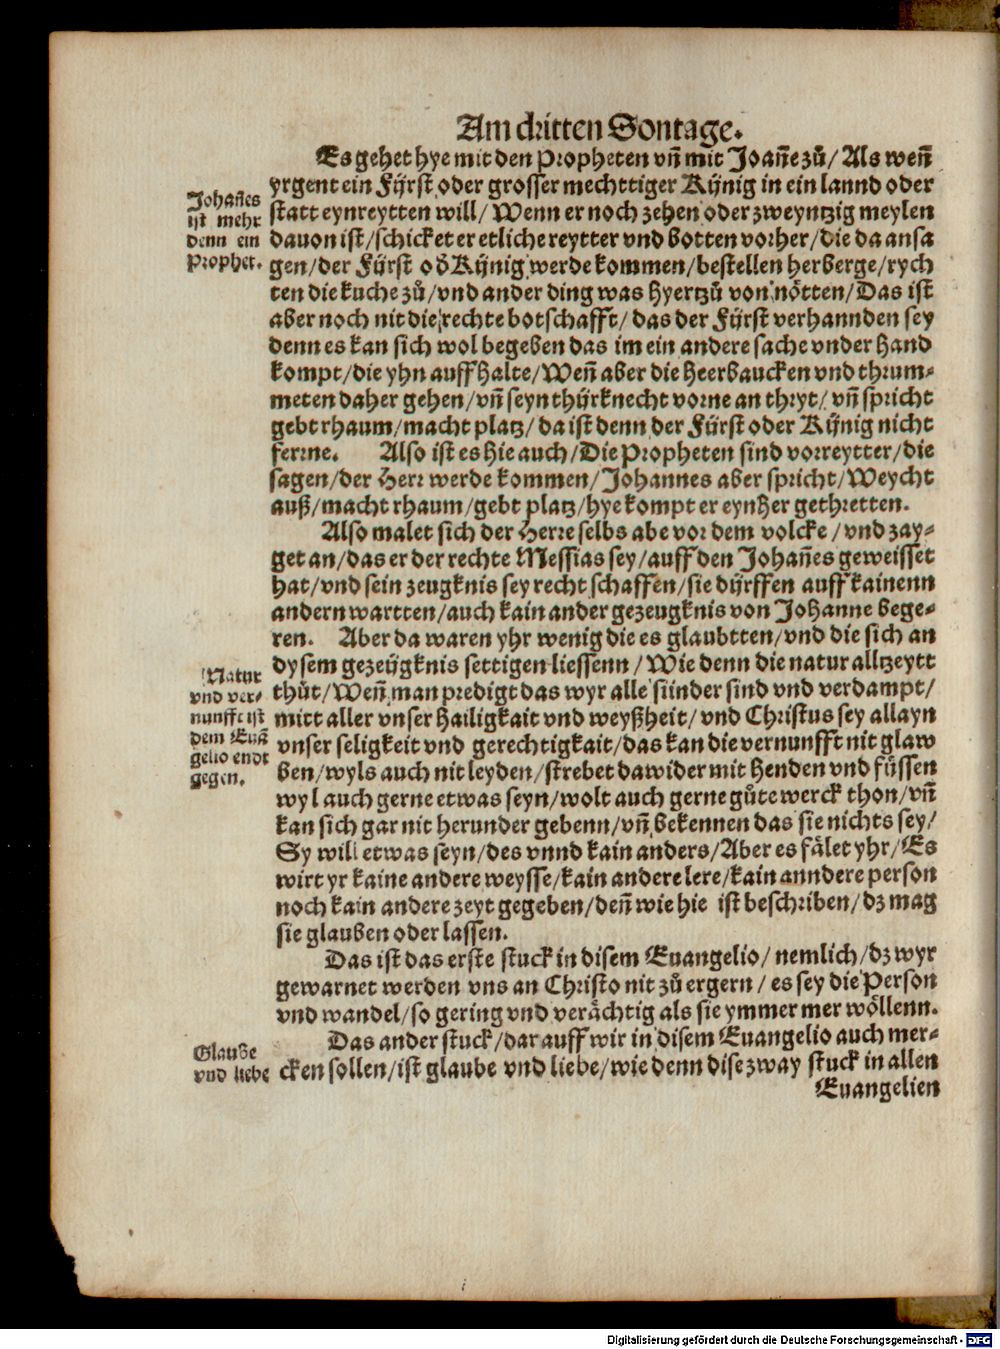 Am dritten Sontage.
Es gehet hye mit den Propheten vñ mit Joañe zů/ Als weñ
yrgent ein Fÿrst oder grosser mechttiger Kÿnig in ein lannd oder
statt eynreytten will/ Wenn er noch zehen oder zweyntzig meylen
dauon ist/ schicket er etliche reytter vnd botten vorher/ die da ansa
gen/ der Fÿrst od̄ Kÿnig werde kommen/ bestellen herberge/ rych
ten die kuche zů/ vnd ander ding was hyertzů von nötten/ Das ist
aber noch nit die rechte botschafft/ das der Fÿrst verhannden sey
denn es kan sich wol begeben das im ein andere sache vnder hand
kompt/ die yhn auff halte/ Weñ aber die heerbaucken vnd thrum-
meten daher gehen/ vñ seyn thÿrknecht vorne an thryt/ vñ spricht
gebt rhaum/ macht platz/ da ist denn der Fÿrst oder Kÿnig nicht
ferrne. Also ist es hie auch/ Die Propheten sind vorreytter/ die
sagen/ der Herr werde kommen/ Johannes aber spricht/ Weycht
auß/ macht rhaum/ gebt platz/ hye kompt er eynher gethretten.
Johañes
ist mehr
denn ein
Prophet.
Also malet sich der Herre selbs abe vor dem volcke/ vnd zay-
get an/ das er der rechte Messias sey/ auff den Johañes geweisset
hat/ vnd sein zeugknis sey recht schaffen/ sie dÿrffen auff kainenn
andern wartten/ auch kain ander gezeugknis von Johanne bege-
ren. Aber da waren yhr wenig die es glaubtten/ vnd die sich an
dysem gezeÿgknis settigen liessenn/ Wie denn die natur alltzeytt
thůt/ Weñ man predigt das wyr alle sünder sind vnd verdampt/
mitt aller vnser hailigkait vnd weyßheit/ vnd Christus sey allayn
vnser seligkeit vnd gerechtigkait/ das kan die vernunfft nit glaw
ben/ wyls auch nit leyden/ strebet dawider mit henden vnd füssen
wyl auch gerne etwas seyn/ wolt auch gerne gůte werck thon/ vñ
kan sich gar nit herunder gebenn/ vñ bekennen das sie nichts sey/
Sy will etwas seyn/ des vnnd kain anders/ Aber es fälet yhr/ Es
wirt yr kaine andere weysse/ kain andere lere/ kain anndere person
noch kain andere zeyt gegeben/ deñ wie hie ist beschriben/ dz mag
sie glauben oder lassen.
Natur
vnd ver-
nunfft ist
dem Euã
gelio endt
gegen.
Das ist das erste stuck in disem Euangelio/ nemlich/ dz wyr
gewarnet werden vns an Christo nit zů ergern/ es sey die Person
vnd wandel/ so gering vnd verächtig als sie ymmer mer wöllenn.
Das ander stuck/ dar auff wir in disem Euangelio auch mer-
cken sollen/ ist glaube vnd liebe/ wie denn dise zway stuck in allen
Glaube
vnd liebe
Euangelien
Digitalisierung gefördert durch die Deutsche Forschungsgemeinschaft - DFG